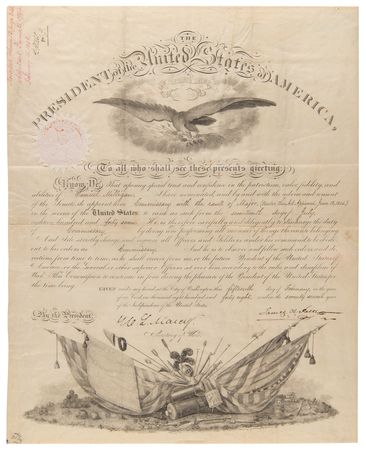 THE
PRESIDENT of the United States of AMERICA,
To all who shall see these presents greeting:
Know Ye, That reposing special trust and confidence in the patriotism, valor, fidelity, and
abilities of I have nominated, and by and with the advice and consent
of the Senate do appoint him Commissary with the rank of Major
in the service of the United States to rank as such from the day of July
eighteen hundred and forty seven He is therefore carefully and diligently to discharge the duty
of Commissary by doing and performing all manner of things thereunto belonging.
And I do strictly charge, and require all Officers and Soldiers under his command to be obedient
to his orders as Commissary And he is to observe and follow such orders, and di-
rections, from time to time, as he shall receive from me or the future President of the United States of
America, or the General or other superior Officers set over him, according to the rules and discipline of
War. This Commission to continue in force during the pleasure of the President of the United States, for
the time being.
GIVEN under my hand at the City of Washington this fifteenth day of February, in the year
of our Lord one thousand eight hundred and forty eight, and in the seventy second year
of the Independence of the United States.
By the President,
W. L. Marcy
Secretary of War.